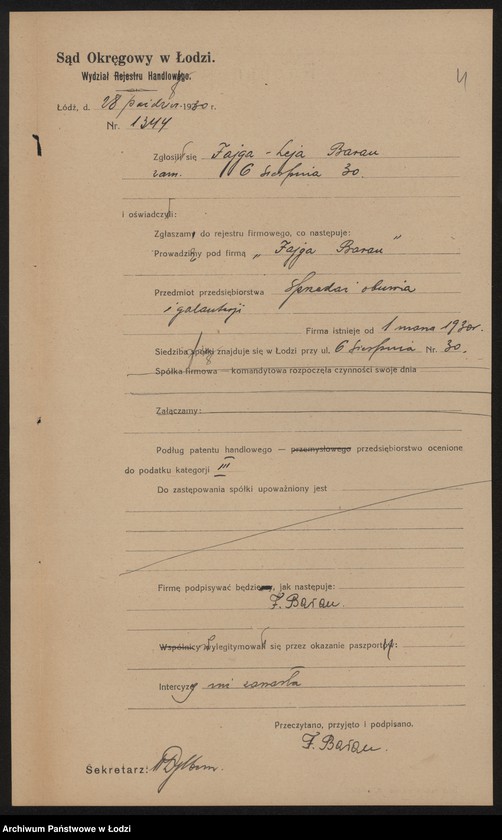 4
Sąd Okręgowy w Łodzi.
Wydział Rejestru Handlowego.
Łódź, d. 28 paźdz. 1930 r.
Nr. 1344
Zgłosił się Fajga-Leja Baran
zam. 6 Sierpnia 30.
i oświadczył:
Zgłaszam do rejestru firmowego, co następuje:
Prowadzimy pod firmą „Fajga Baran"
Przedmiot przedsiębiorstwa Sprzedaż obuwia
i galanterji
Firma istnieje od 1 marca 1930 r.
Siedziba spółki znajduje się w Łodzi przy ul. 6 Sierpnia Nr. 30.
Spółka firmowa — komandytowa rozpoczęła czynności swoje dnia
Załączamy:
Podług patentu handlowego — przemysłowego przedsiębiorstwo ocenione
do podatku kategorji III
Do zastępowania spółki upoważniony jest
Firmę podpisywać będziemy, jak następuje:
F. Baran.
Wspólnicy wylegitymowali się przez okazanie paszportów:
Intercyzy nie zawarła
Przeczytano, przyjęto i podpisano.
F. Baran.
Sekretarz:
Archiwum Państwowe w Łodzi